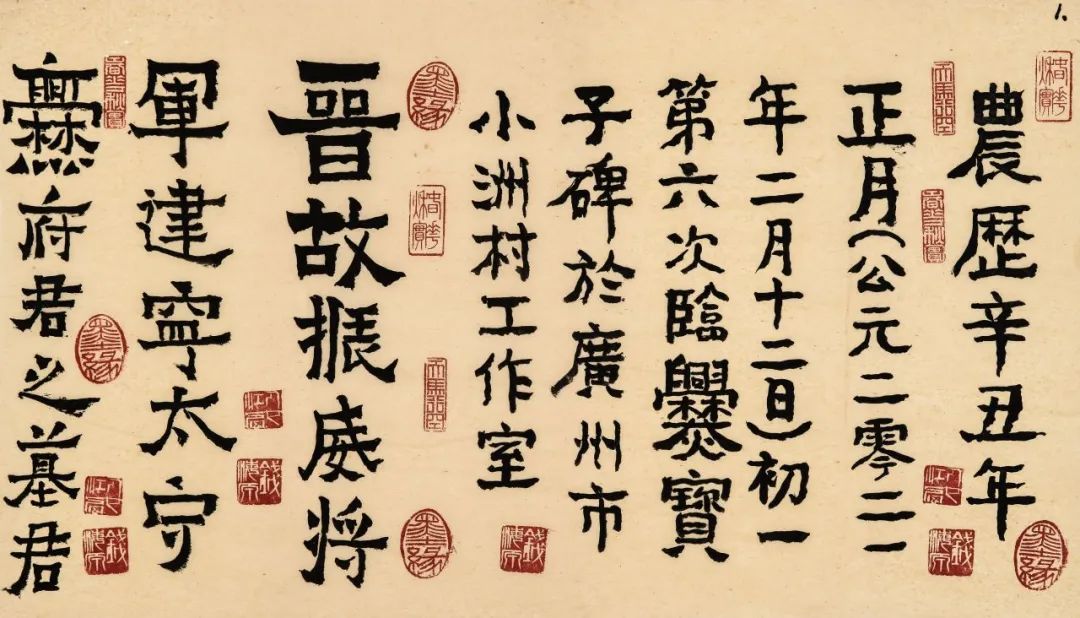 1.
農歴辛丑年
正月(公元二零二一
年二月十二日)初一
第六次臨爨寶
子碑於廣州市
小洲村工作室
晉故振威将
軍建寧太守
爨府君之墓君
墨緣